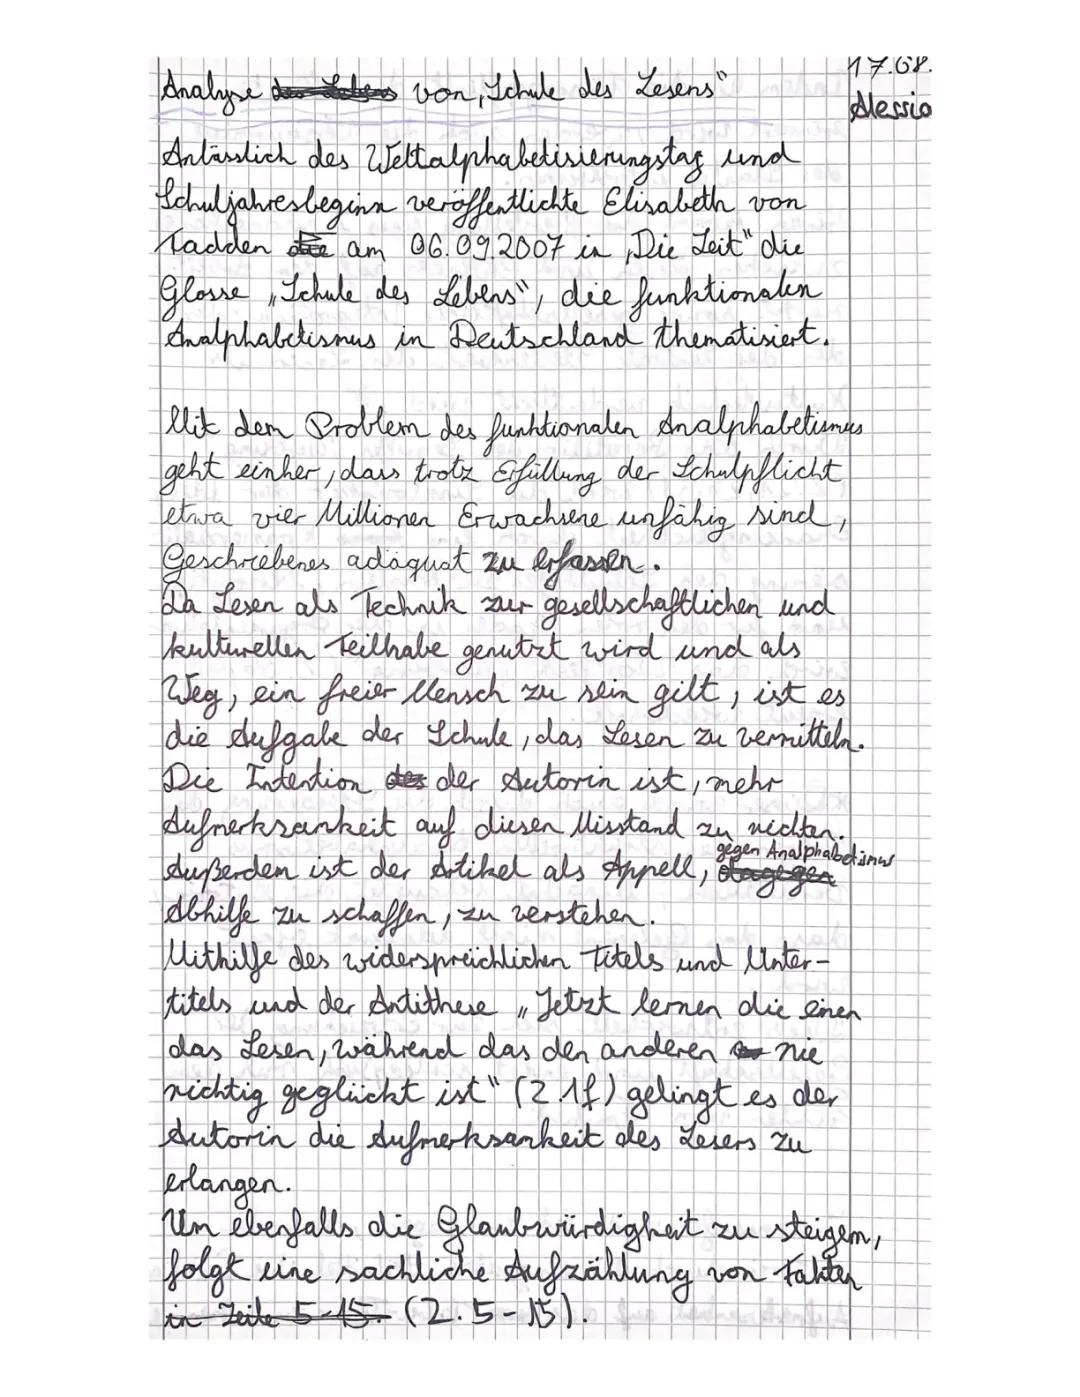 17.08.
Analyse des Lebens von „Schule des Lesens"
Alessia
Anlässlich des Weltalphabetisierungstag und
Schuljahresbeginn veröffentlichte Elisabeth von
Tadden die am 06.09.2007 in „Die Zeit" die
Glosse „Schule des Lebens", die funktionalen
Analphabetismus in Deutschland thematisiert.
Mit dem Problem des funktionalen Analphabetismus
geht einher, dass trotz Erfüllung der Schulpflicht
etwa vier Millionen Erwachsene unfähig sind,
Geschriebenes adäquat zu erfassen.
Da Lesen als Technik zur gesellschaftlichen und
kulturellen Teilhabe genutzt wird und als
Weg, ein freier Mensch zu sein gilt, ist es
die Aufgabe der Schule, das Lesen zu vermitteln.
Die Intention des der Autorin ist, mehr
Aufmerksamkeit auf diesen Misstand zu richten.
gegen Analphabetismus
Außerdem ist der Artikel als Appell, dagegen
Abhilfe zu schaffen, zu verstehen.
Mithilfe des widersprüchlichen Titels und Unter-
titels und der Antithese „Jetzt lernen die einen
das Lesen, während das den anderen nie
richtig geglückt ist" (Z 1f) gelingt es der
Autorin die Aufmerksamkeit des Lesers zu
erlangen.
Um ebenfalls die Glaubwürdigkeit zu steigern,
folgt eine sachliche Aufzählung von Fakten
in Zeile 5-15. (Z. 5-15).